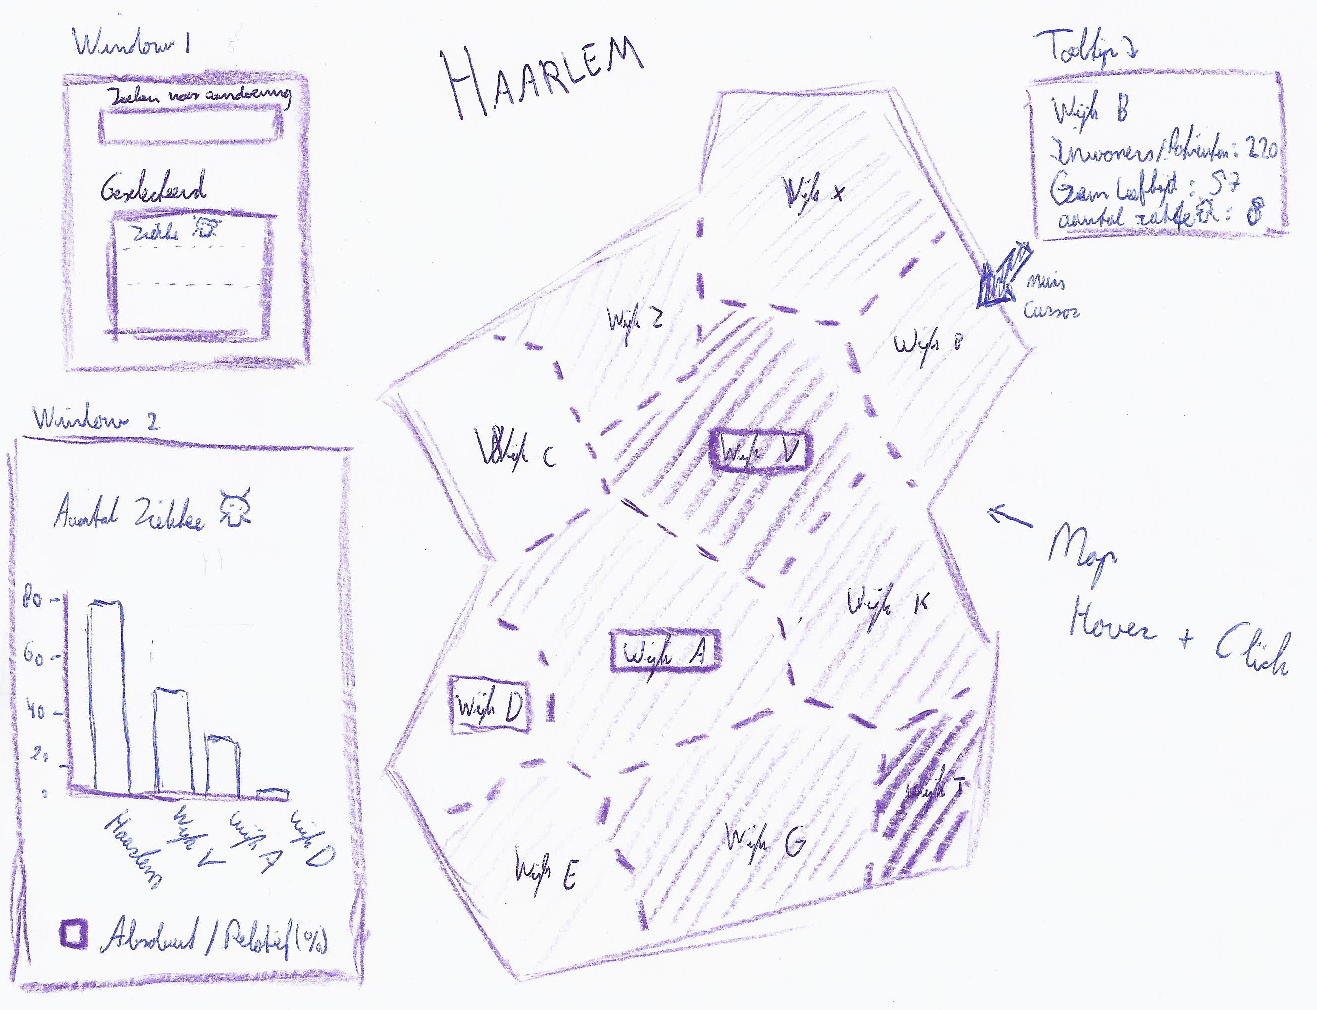 Window 1
Zoeken naar aandoening
Geselecteerd
Ziekte
HAARLEM
Tooltip
Wijk B
Inwoners/Patienten: 220
Gem leeftijd: 57
aantal ziekte : 8
muis
cursor
Wijk X
Wijk Z
Wijk B
Wijk C
Wijk V
Wijk K
Wijk A
Wijk D
Wijk G
Wijk E
Map
Hover + Click
Window 2
Aantal Ziekte
80
60
40
20
0
Haarlem
Wijk V
Wijk A
Wijk D
Absoluut / Relatief (%)